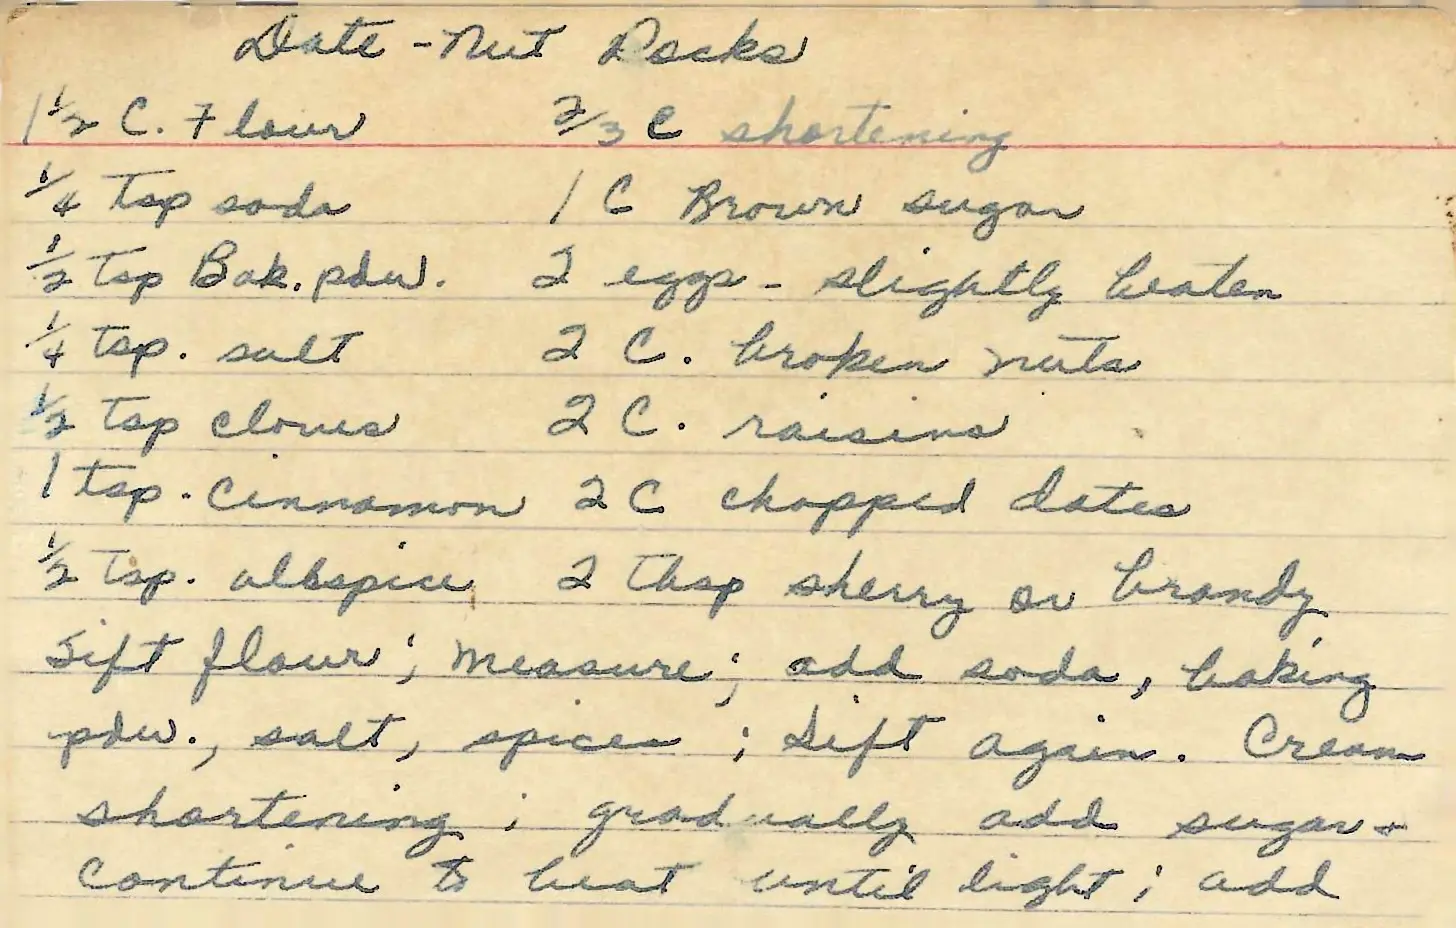 Date-Nut Rocks
1 1/2 C. Flour 2/3 C shortening
1/4 tsp soda 1 C Brown sugar
1/2 tsp Bak. pdw. 2 eggs - slightly beaten
1/4 tsp. salt 2 C. broken nuts
1/2 tsp cloves 2 C. raisins
1 tsp. cinnamon 2 C chopped dates
1/2 tsp. allspice 2 tbsp sherry or brandy
Sift flour; measure; add soda, baking
pdw., salt, spices; sift again. Cream
shortening; gradually add sugar +
continue to beat until light; add